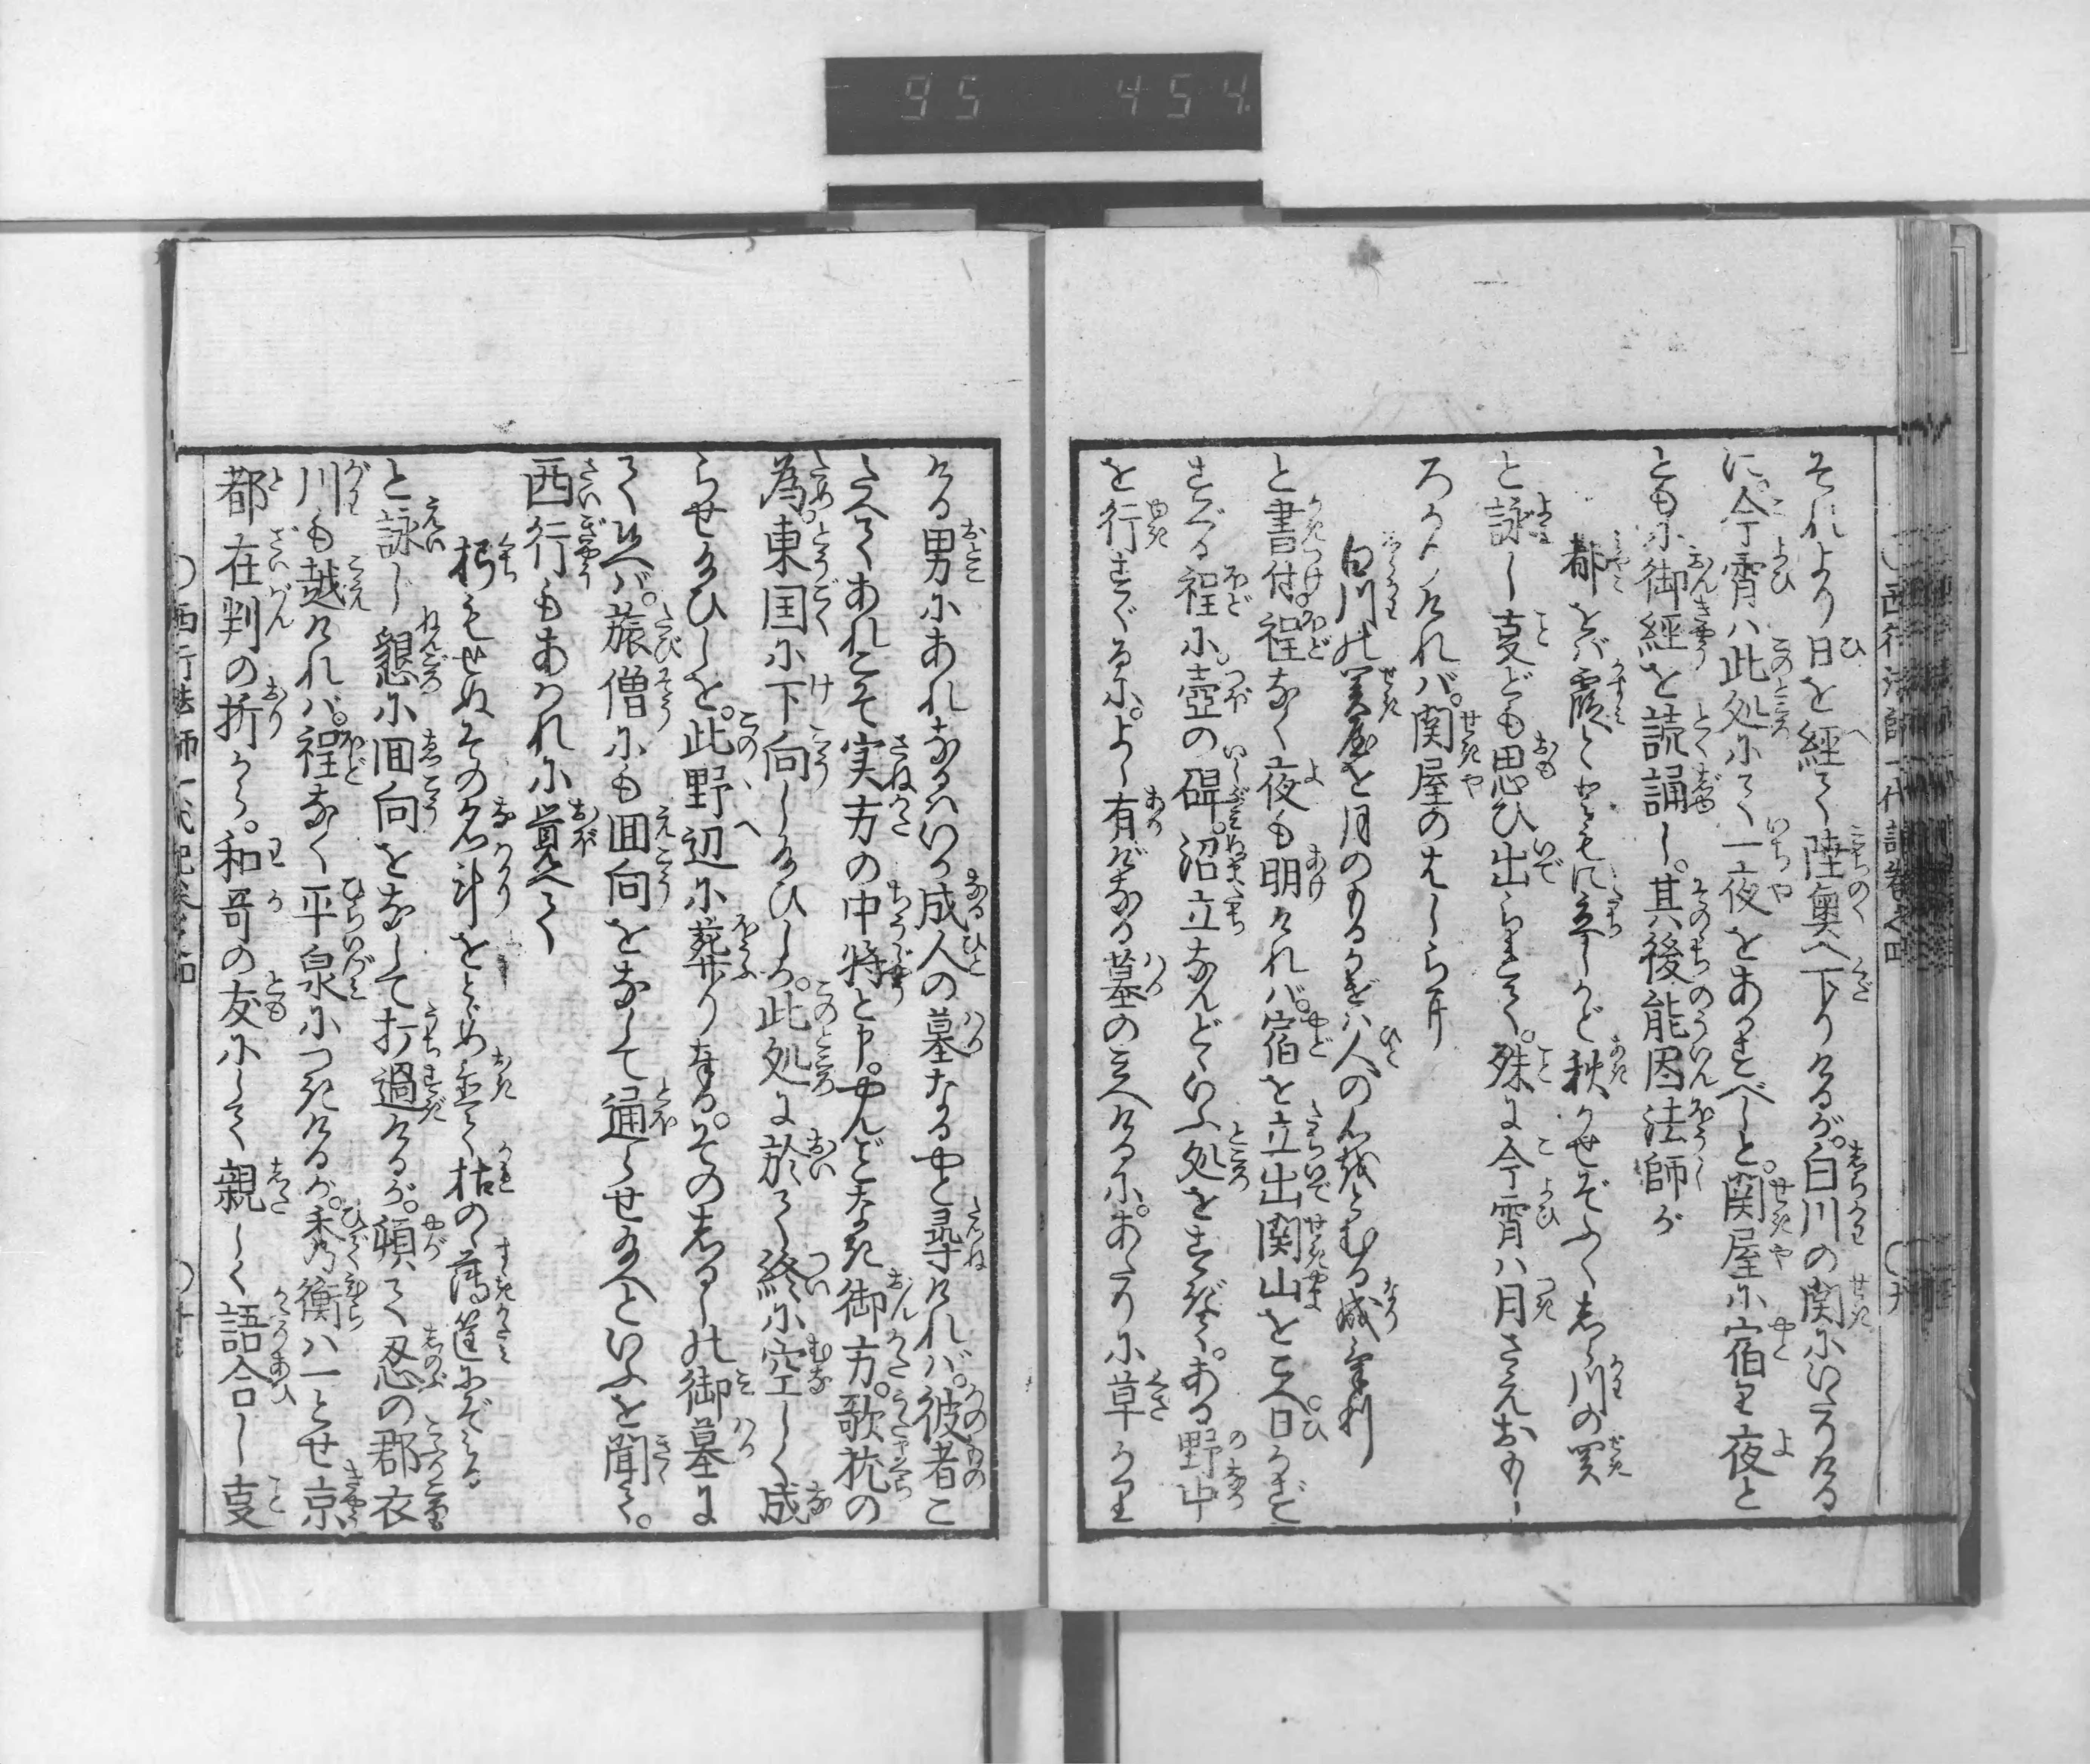 95 454
西行法師一代記巻之四
それより日を経て陸奥へ下りけるが。白川の関にいたりける
に。今宵ハ此処にて一夜をあかすべしと。関屋に宿り夜と
ともに御経を読誦し。其後能因法師が
都をバ霞とともに立しかど秋かせぞふくしら川の関
と詠し叓ども思ひ出られて。殊に今宵ハ月さえおもし
ろかりけれバ。関屋のはしらに
白川の関屋を月のもるかげハ人の心をとむる成けり
と書付。程なく夜も明けれバ。宿を立出関山をこへ日かず
すぐる程に。壺の碑。沼立なんどゝいふ処をすぎて。ある野中
を行すぐるに。よし有げなる墓のミへけるに。あたりに草かり
ける男にあれなるハいか成人の墓なるやと尋けれバ。彼者こ
たへてあれこそ実方の中将と申。やんごとなき御方。歌枕の
為。東国に下向し給ひしが。此処に於て終に空しく成
らせ給ひしを。此野辺に葬りける。そのしるしの御墓に
て候へバ。旅僧にも回向をなして通らせ給へといふを聞て。
西行もあわれに覚へて
朽もせぬその名斗をとゞめ置て枯のゝ薄筐にぞミる
と詠し懇に回向をなして打過けるが。頓て忍の郡衣
川も越けれバ。程なく平泉につきけるが。秀衡ハ一とせ京
都在判の折から。和哥の友にして親しく語合し叓
西行法師一代記巻之四